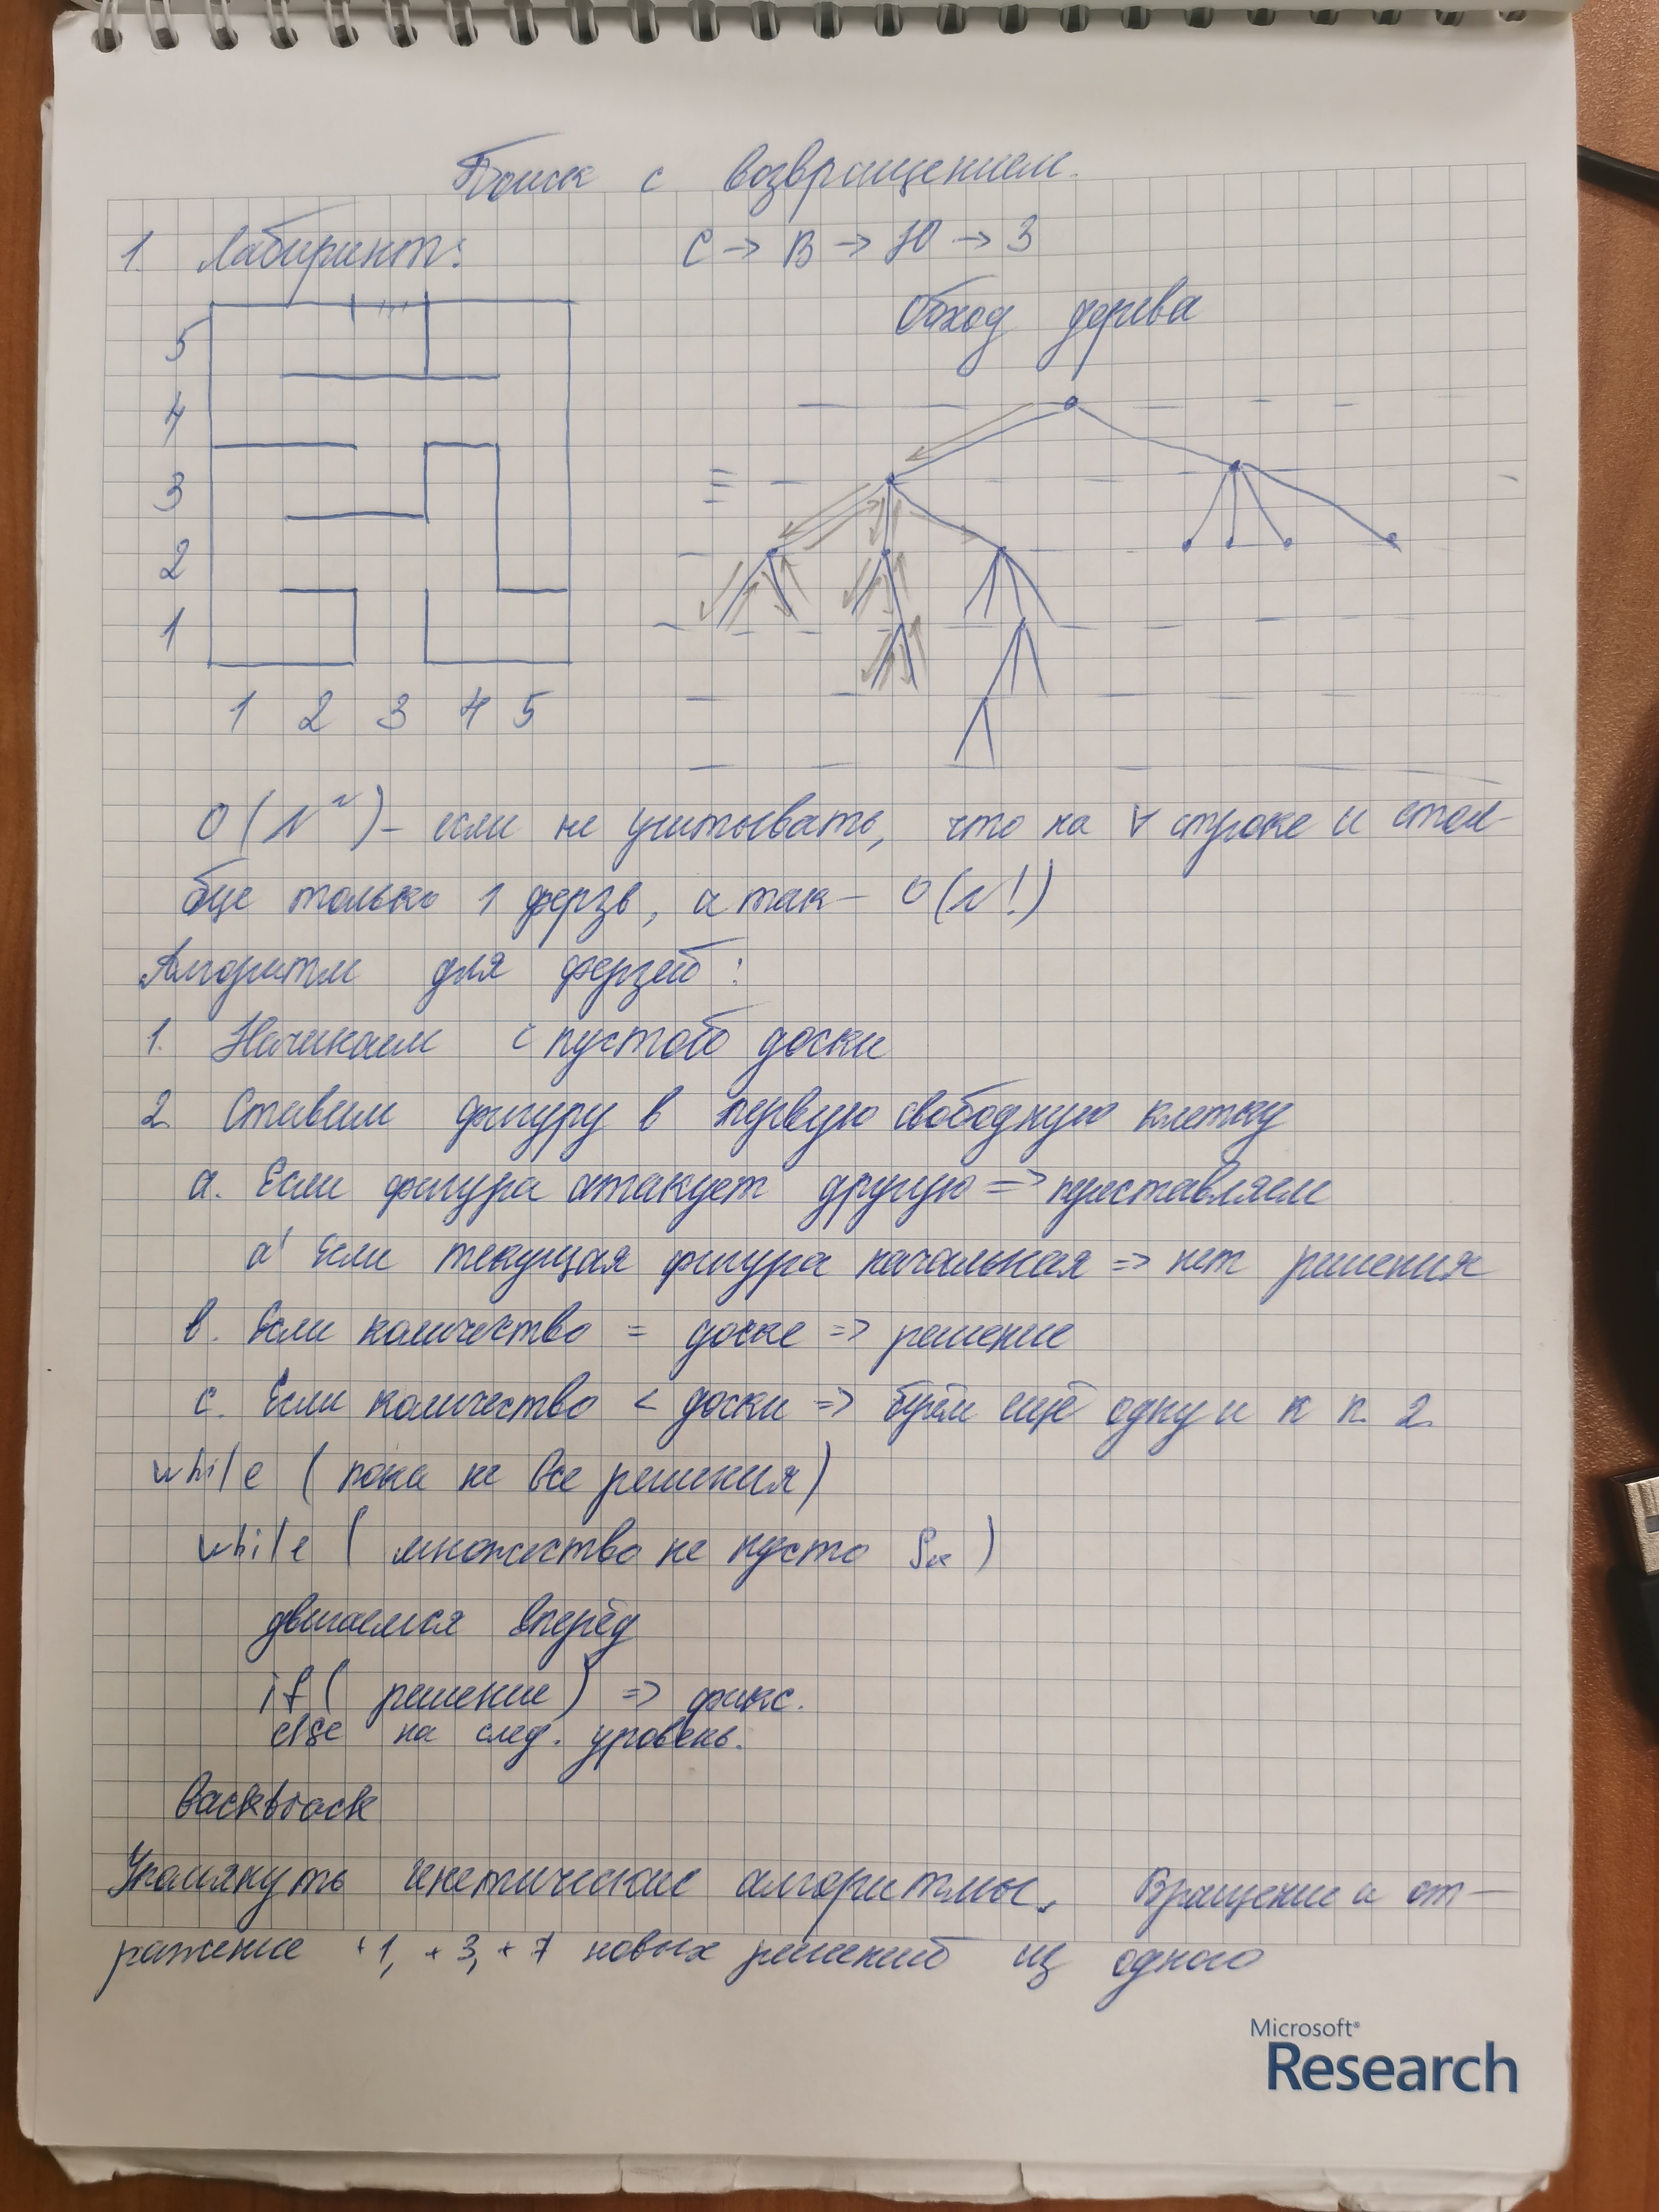 Поиск с возвращением.
1. Лабиринт: С → В → Ю → З
Обход дерева
5
4
3
2
1
1 2 3 4 5
O(N^N) – если не учитывать, что на ∀ строке и стол-
бце только 1 ферзь, а так – O(N!)
Алгоритм для ферзей:
1. Начинаем с пустой доски
2. Ставим фигуру в первую свободную клетку
a. Если фигура атакует другую => переставляем
a' Если текущая фигура начальная => нет решения
b. Если количество = доске => решение
c. Если количество < доски => берём ещё одну и к п. 2.
while (пока не все решения)
while (множество не пусто Sк)
двигаемся вперёд
if (решение) => фикс.
else на след. уровень.
Backtrack
Упомянуть генетические алгоритмы. Вращение и от-
ражение +1, +3, +7 новых решений из одного
Microsoft®
Research